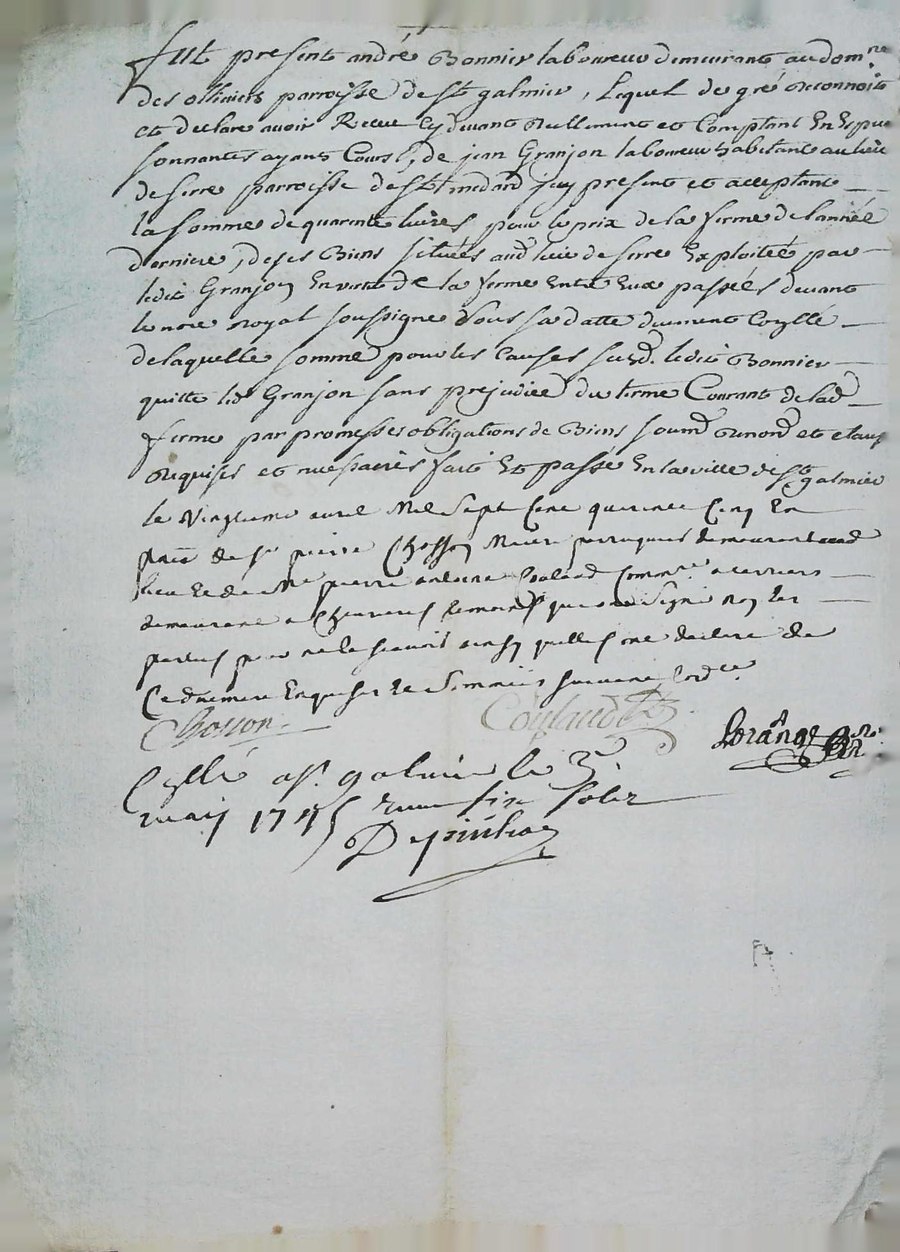 Fut present andré Bonnier laboureur demeurant au dom.ne
des olliviers parroisse de St galmier, Lequel de gré reconnoit
et declare avoir Receu Cy devant reellement et Comptant En Espece
sonnantes ayant Cours, de jean Granjon laboureur habitant au lieu
de serre parroisse de St medard icy present et acceptant
la somme de quarante livres pour le prix de la ferme de l'année
derniere, de ses Biens situées aud lieu de serre Exploitée par
ledit Granjon En vertu de la ferme Entre Eux passées devant
le nore royal soussigne sous sa datte duement Coyllé
de laquelle somme pour les Causes susd. ledit Bonnier
quitte led Granjon sans prejudice du terme Courant de lad
ferme par promesses obligations de Biens soumd renond et claus
requises et necessaires fait Et passé En la ville de St galmier
le vingtieme avril Mil Sept Cent quarante Cinq En
pnce de Sr pierre Chosson Maitre perruquier demeurant aud
lieu Et de Me pierre antoine Coulaud Commre a terriers
demeurant a Chevrieres temoins qui ont Signé non les
parties pour ne le scavoir ainsy quelles ont declaré de
Ce duement Enquises Et Sommées suivant l'ordce.
Chosson
Coulaud
Cyllé a St galmier le 3e
may 1745 six solz